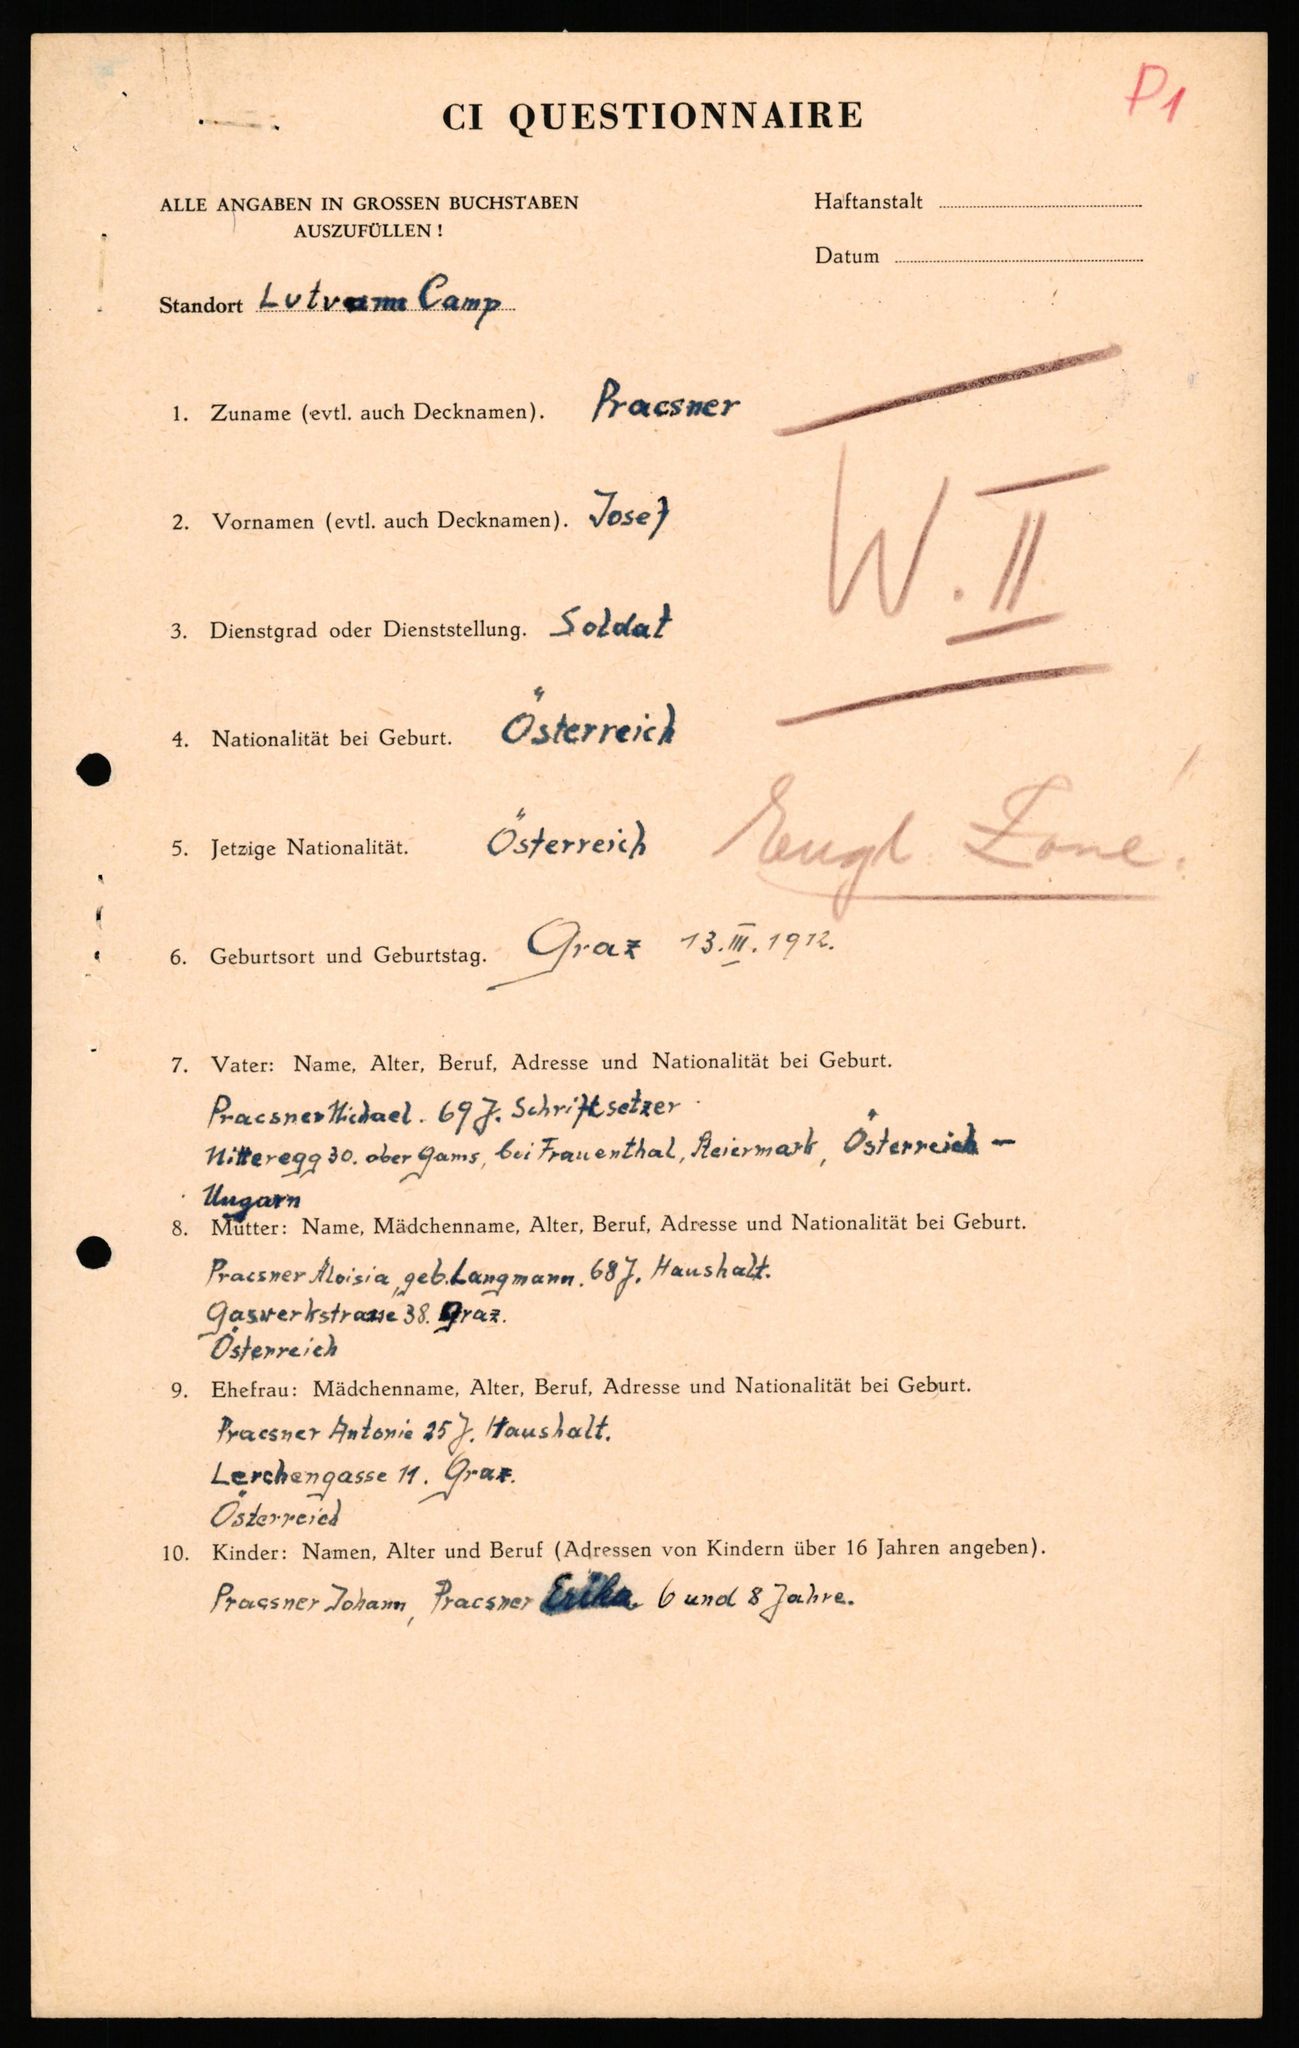 P1
CI QUESTIONNAIRE
ALLE ANGABEN IN GROSSEN BUCHSTABEN
AUSZUFÜLLEN !
Haftanstalt
Datum
Standort Camp
1. Zuname (evtl. auch Decknamen). Pracsner
2. Vornamen (evtl. auch Decknamen). Josef
W. II
3. Dienstgrad oder Dienststellung. Soldat
4. Nationalität bei Geburt. Österreich
5. Jetzige Nationalität. Österreich
Engl. Zone!
6. Geburtsort und Geburtstag. Graz 13. III. 1912.
7. Vater: Name, Alter, Beruf, Adresse und Nationalität bei Geburt.
Pracsner Michael. 69 J. Schriftsetzer
Mitteregg 30. ober Gams, bei Frauenthal, Steiermark, Österreich –
Ungarn
8. Mutter: Name, Mädchenname, Alter, Beruf, Adresse und Nationalität bei Geburt.
Pracsner Aloisia, geb. Langmann. 68 J. Haushalt.
Gaswerkstrasse 38. Graz.
Österreich
9. Ehefrau: Mädchenname, Alter, Beruf, Adresse und Nationalität bei Geburt.
Pracsner Antonie 25 J. Haushalt.
Lerchengasse 11. Graz.
Österreich
10. Kinder: Namen, Alter und Beruf (Adressen von Kindern über 16 Jahren angeben).
Pracsner Johann, Pracsner Erika 6 und 8 Jahre.